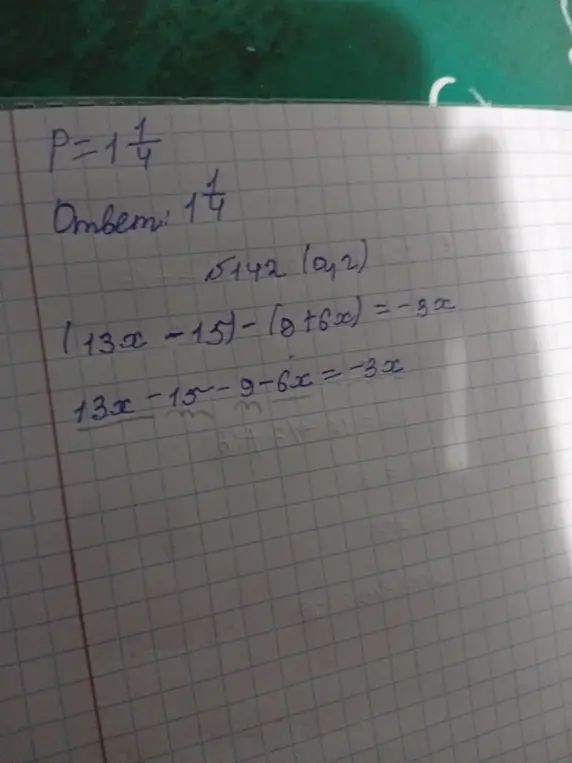 P=1 1/4
Ответ: 1 1/4
№142 (а,г)
(13x - 15) - (9+6x) = -3x
13x - 15 - 9 - 6x = -3x